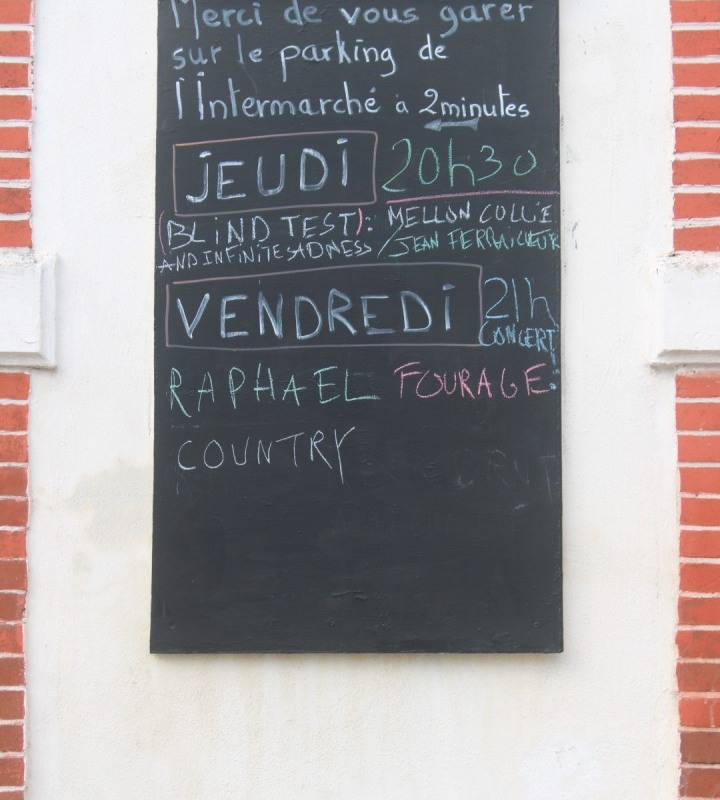 Merci de vous garer
sur le parking de
l'Intermarché à 2minutes
JEUDI 20h30
(BLIND TEST): MELLON COLLIE
AND INFINITE SADNESS / JEAN
VENDREDI 21h
CONCERT:
RAPHAEL FOURAGE
COUNTRY